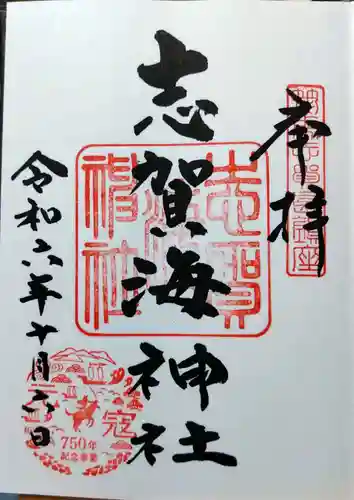 奉拝
志賀海神社
令和六年十月六日
志賀海神社
750年
記念事業